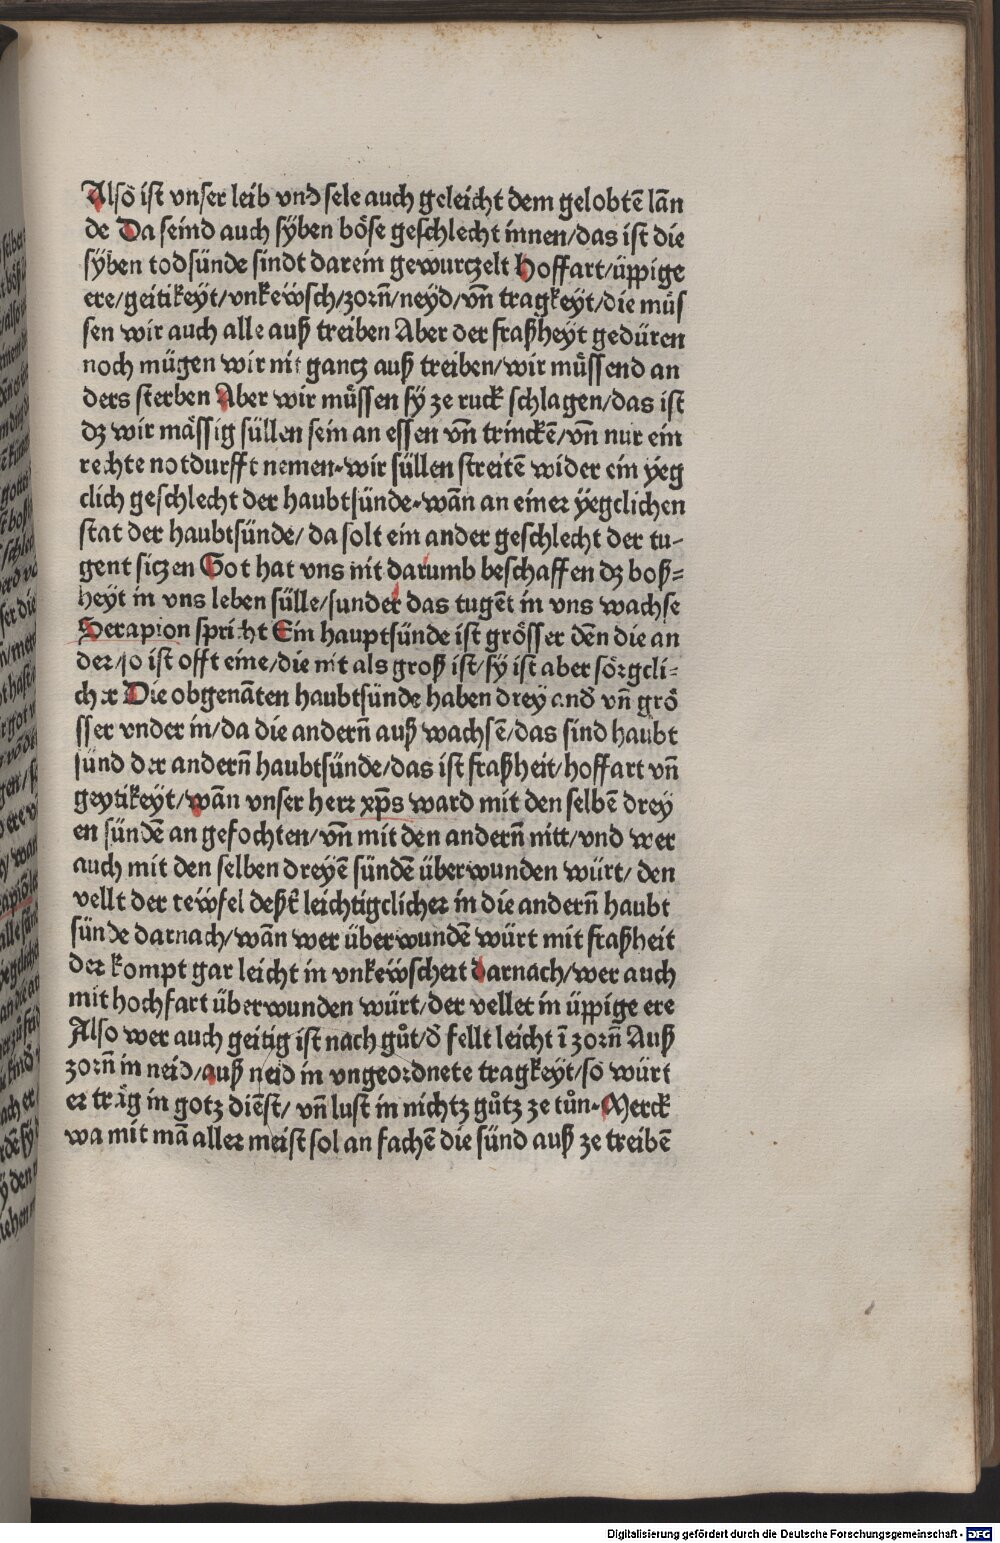 Alsõ ist vnser leib vnd sele auch geleicht dem gelobtē lān
de Da seind auch sÿben böse geschlecht innen/das ist die
sÿben todsünde sindt darein gewurczelt Hoffart/üppige
ere/geitikeÿt/vnkeẅsch/zorn̄/neÿd/vn̄ tragkeÿt/die müs
sen wir auch alle auß treiben Aber der fraßheÿt gedüren
noch mügen wir nit gantz auß treiben/wir müssend an
ders sterben Aber wir müssen sÿ ze ruck schlagen/das ist
dz wir mässig süllen sein an essen vn̄ trinckē/vn̄ nur ein
rechte notdurfft nemen·wir süllen streitē wider ein ÿeg
clich geschlecht der haubtsünde·wān an einer ÿegclichen
stat der haubtsünde/da solt ein ander geschlecht der tu-
gent siczen Got hat vns nit darumb beschaffen dz boß=
heÿt in vns leben sülle/sunder das tugēt in vns wachse
Serapion spricht Ein hauptsünde ist grösser den die an
der/so ist offt eine/die nit als groß ist/sÿ ist aber sörgcli-
cher Die obgenāten haubtsünde haben dreÿ and vn̄ grö
sser vnder in/da die andern̄ auß wachsē/das sind haubt
sünd der andern̄ haubtsünde/das ist fraßheit/hoffart vn̄
geytikeÿt/wān vnser herr xp̄s ward mit den selbē dreÿ
en sündē an gefochten/vn̄ mit den andern̄ nitt/vnd wer
auch mit den selben dreÿē sündē überwunden würt/den
vellt der teẅfel deßt̄ leichtigclicher in die andern̄ haubt
sünde darnach/wān wer überwundē würt mit fraßheit
der kompt gar leicht in vnkeẅscheit darnach/wer auch
mit hochfart überwunden würt/der vellet in üppige ere
Also wer auch geitig ist nach gůt/d̄ fellt leicht ī zorn̄ Auß
zorn̄ in neid/auß neid in vngeordnete tragkeÿt/so würt
er träg in gotz diēst/vn̄ lust in nichtz gůtz ze tůn·Merck
wa mit mā aller meist sol an fachē die sünd auß ze treibē
Digitalisierung gefördert durch die Deutsche Forschungsgemeinschaft - DFG